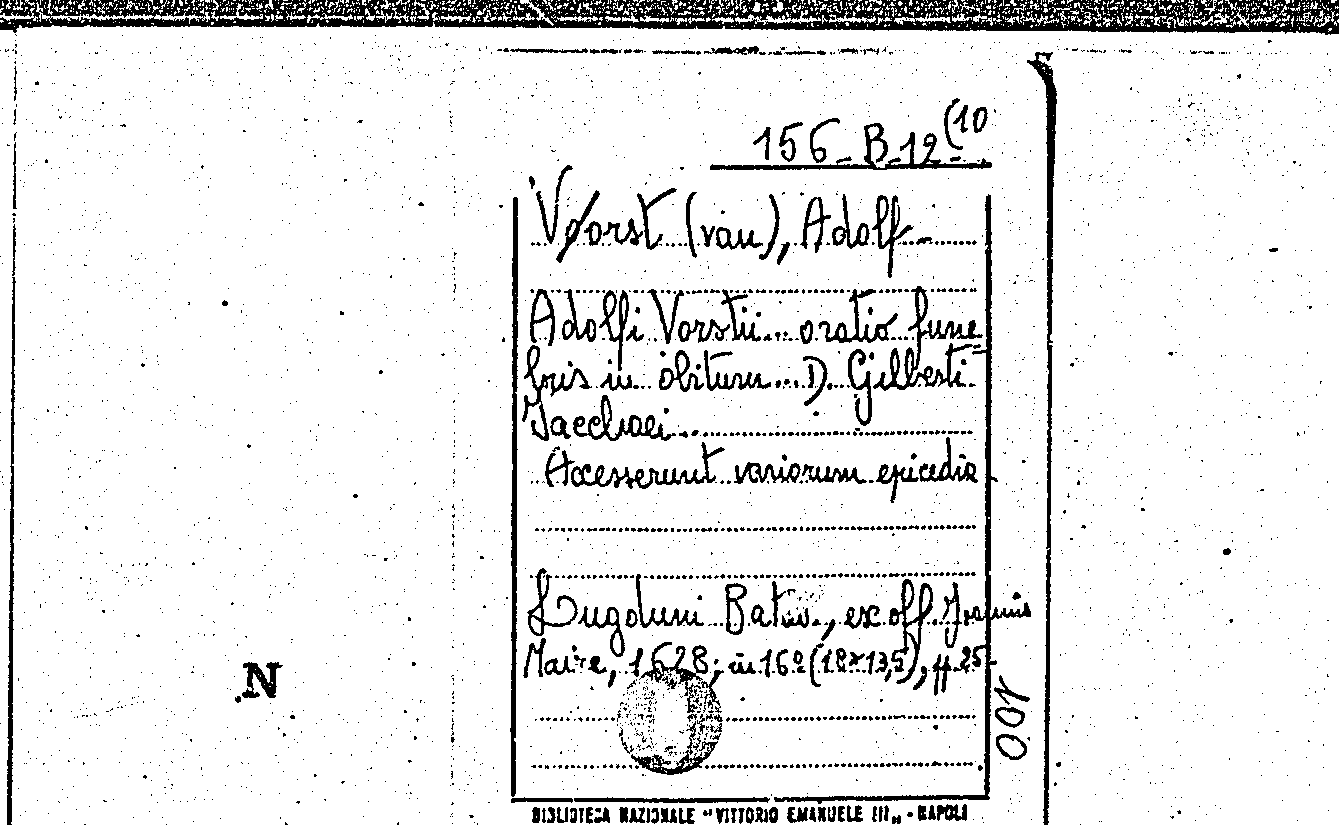 156-B-12(10
Vorst (van), Adolf-
Adolfi Vorstii... oratio fune=
bris in obitum... D. Gilberti
Jacchaei...
Accesserunt variorum epicedia.
Lugduni Batav., ex off. Joannis
Maire, 1628; in 16º (18x13,5), ff. 25.
N
BIBLIOTECA NAZIONALE "VITTORIO EMANUELE III" - NAPOLI